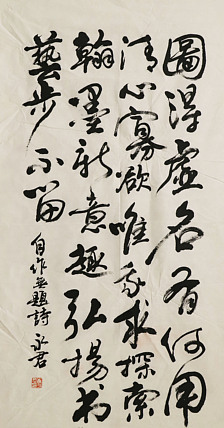 圖得虛名有何用
清心寡欲唯我求探索
翰墨新意趣弘揚书
藝步不留
自作無題詩 永君